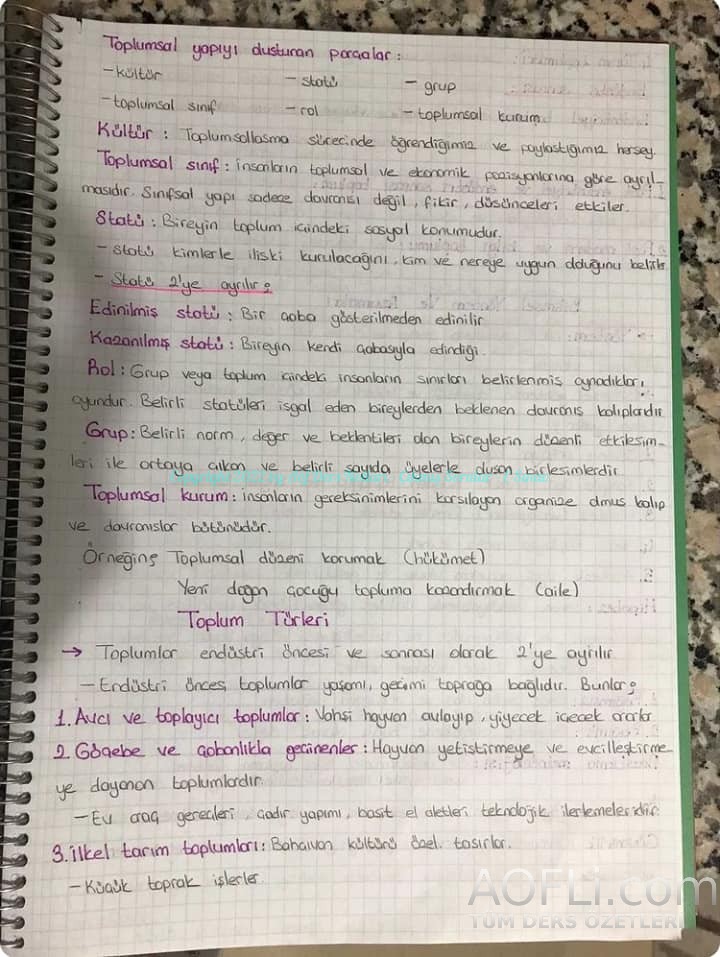 Toplumsal yapıyı oluşturan parçalar:
– kültür – statü – grup
– toplumsal sınıf – rol – toplumsal kurum
Kültür: Toplumsallaşma sürecinde öğrendiğimiz ve paylaştığımız herşey.
Toplumsal sınıf: insanların toplumsal ve ekonomik pozisyonlarına göre ayrıl-
masıdır. Sınıfsal yapı sadece davranışı değil, fikir, düşünceleri etkiler.
Statü: Bireyin toplum içindeki sosyal konumudur.
– statü kimlerle ilişki kurulacağını, kim ve nereye uygun olduğunu belirler
– Statü 2'ye ayrılır;
Edinilmiş statü: Bir çaba gösterilmeden edinilir
Kazanılmış statü: Bireyin kendi çabasıyla edindiği.
Rol: Grup veya toplum içindeki insanların sınırları belirlenmiş oynadıkları
oyundur. Belirli statüleri işgal eden bireylerden beklenen davranış kalıplarıdır
Grup: Belirli norm, değer ve beklentileri olan bireylerin düzenli etkileşim-
leri ile ortaya çıkan ve belirli sayıda üyelerle oluşan birleşimlerdir
Toplumsal kurum: insanların gereksinimlerini karşılayan organize olmuş kalıp
ve davranışlar bütünüdür.
Örneğin; Toplumsal düzeni korumak (hükümet)
Yeni doğan çocuğu topluma kazandırmak (aile)
Toplum Türleri
→ Toplumlar endüstri öncesi ve sonrası olarak 2'ye ayrılır
– Endüstri öncesi toplumlar yaşamı, geçimi toprağa bağlıdır. Bunlar;
1. Avcı ve toplayıcı toplumlar: Vahşi hayvan avlayıp, yiyecek içecek ararlar
2. Göçebe ve çobanlıkla geçinenler: Hayvan yetiştirmeye ve evcilleştirme-
ye dayanan toplumlardır.
– Ev araç gereçleri, çadır yapımı, basit el aletleri teknolojik ilerlemeleridir.
3. ilkel tarım toplumları: Bahçıvan kültürü özel. taşırlar.
– Küçük toprak işlerler.
AOFLi.com
TÜM DERS ÖZETLERİ